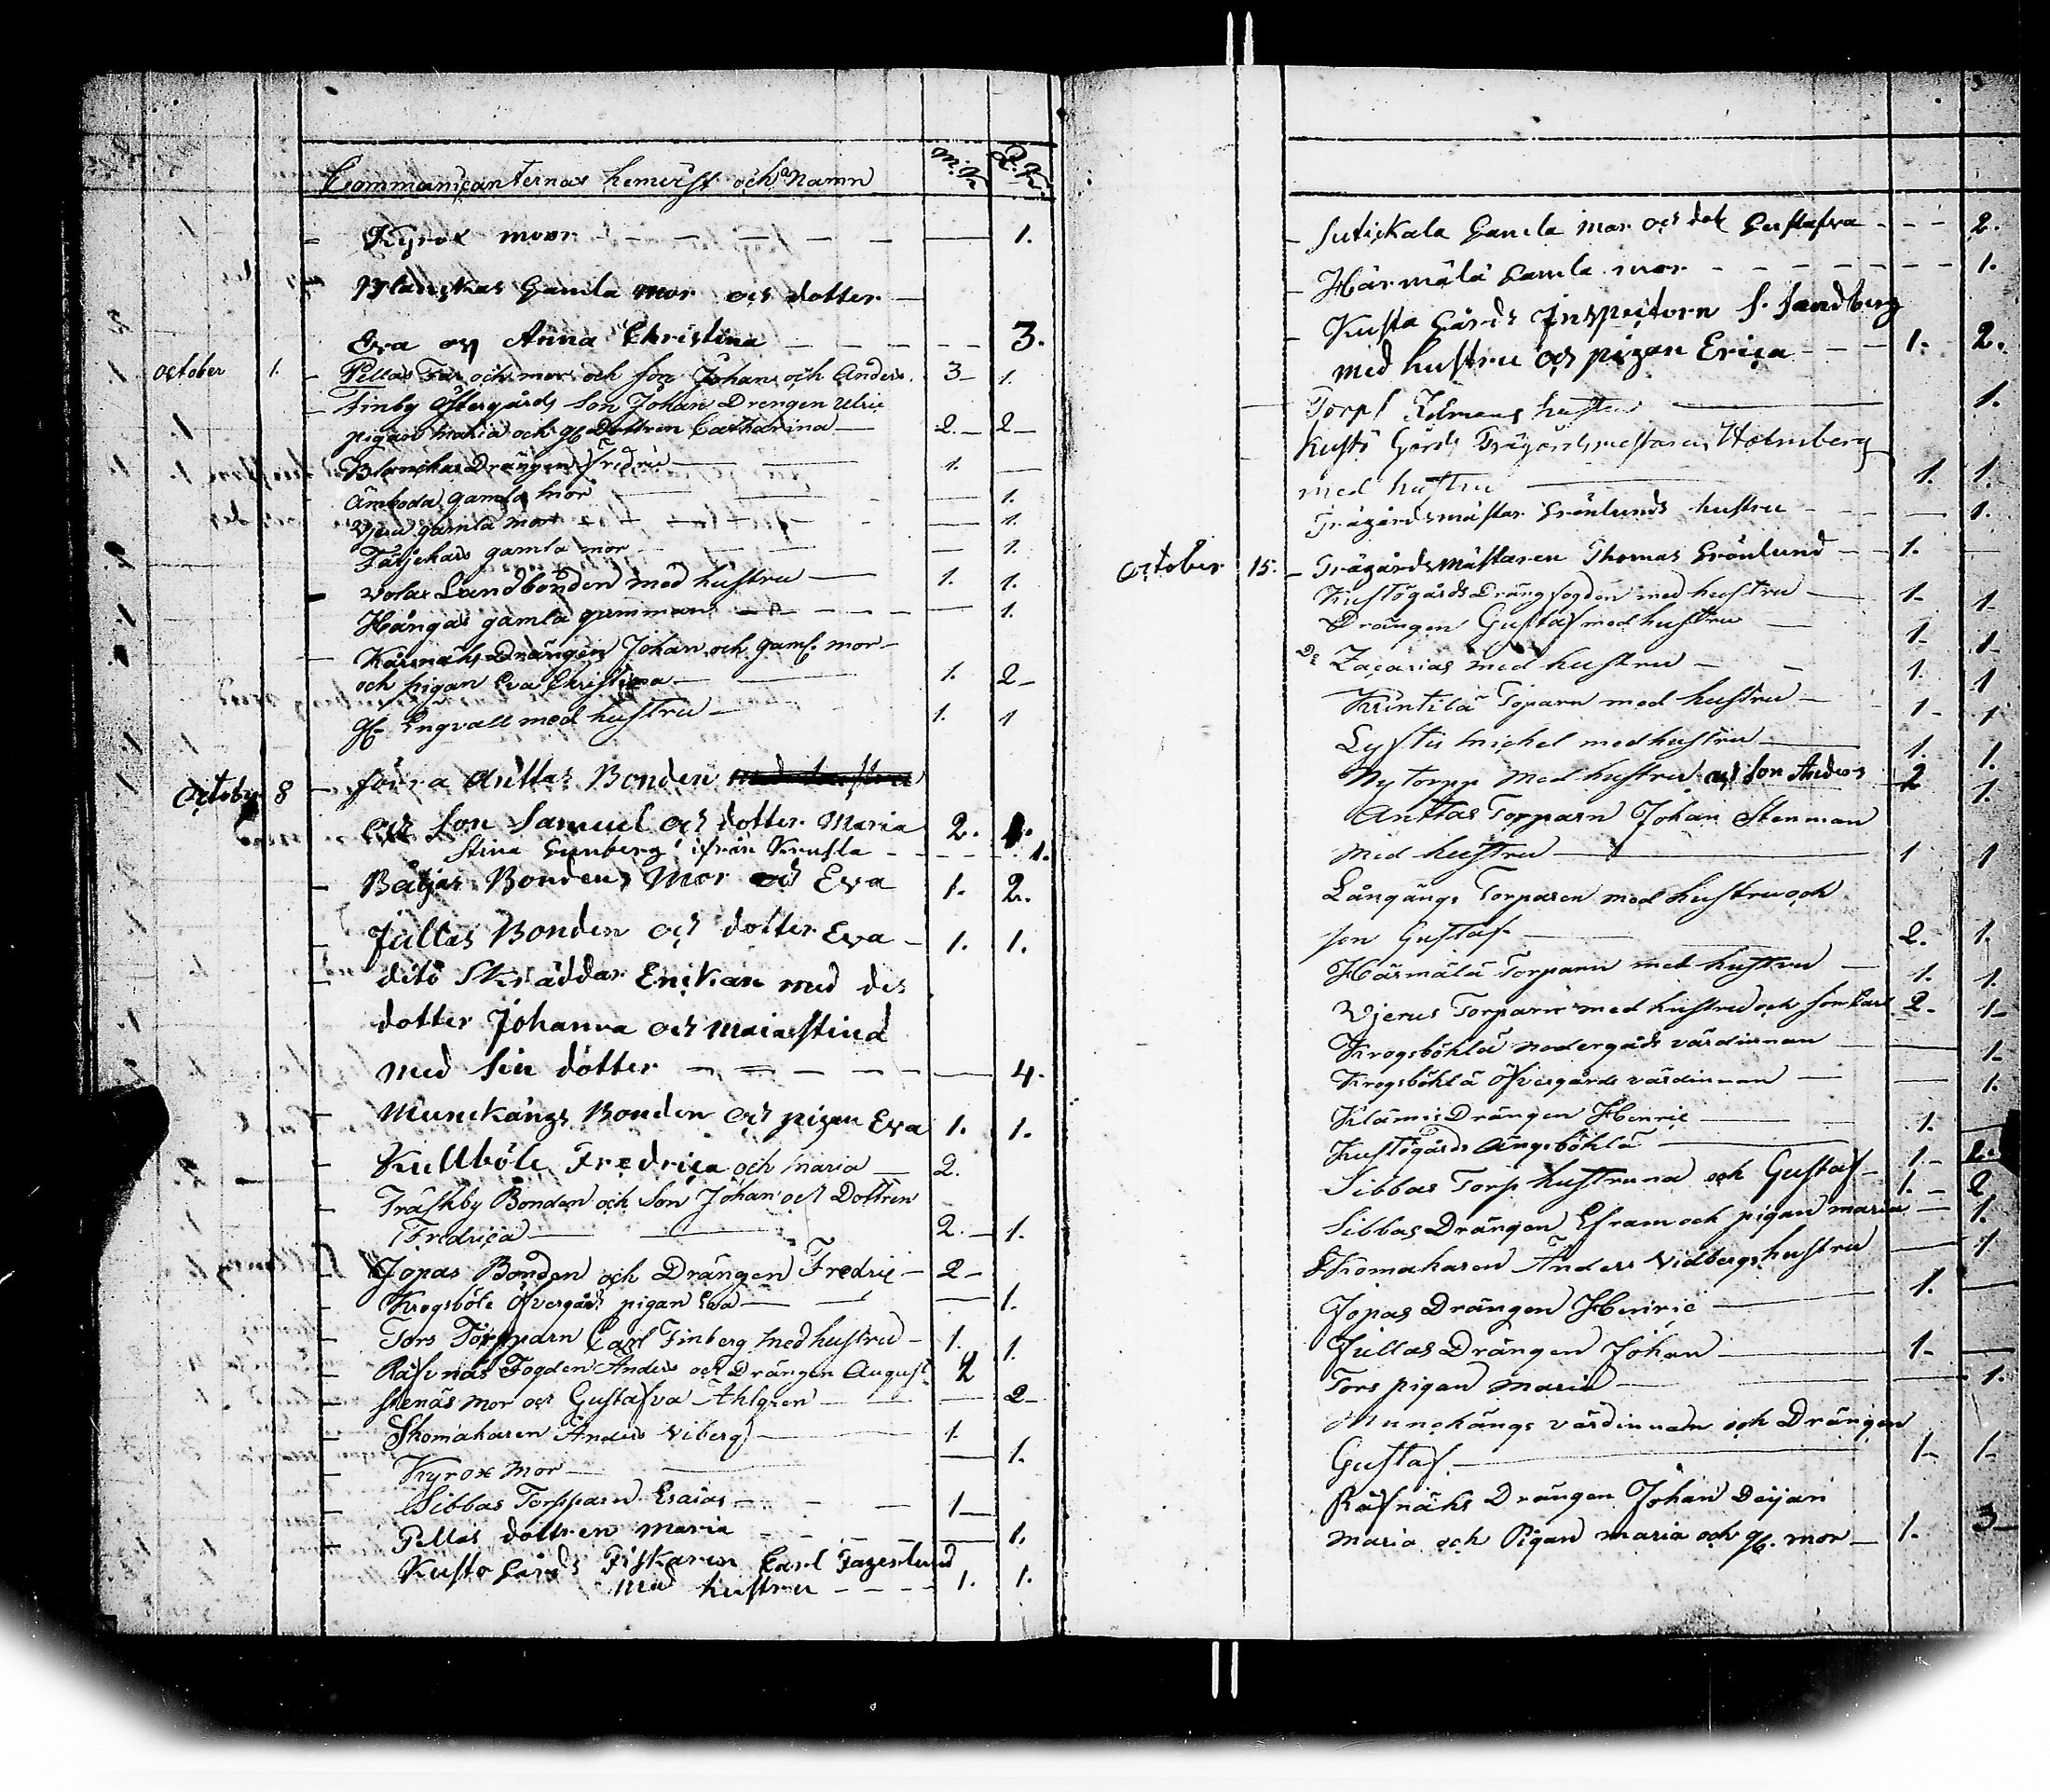 Communicanternas hemvist och Namn M.K. Q.K.
Kyrox moor 1.
Blanckas Gamla mor och dotter
Eva och Anna Christina 3.
october 1. Pellas Far och mor och son Johan och Anders. 3 1.
Finby Östergårds Son Johan Drengen Ulric
pigan Maria och gl Dottren Catharina 2. 2
Blanckas Drängen Fredric 1.
Åmboda gamla mor 1.
Vjeru gamla mor 1.
Tätjekars gamla mor 1.
volax Landbonden med hustru 1. 1.
Hångas gamla gumman 1.
Kärrnäks Drängen Johan och gaml. mor
och pigan Eva Christina 1. 2
Engvall med hustru 1. 1
October 8 södra Anttas Bonden
och son Samuel och dotter Maria 2. 1.
Stina Gunberg ifrån Krusta 1.
Bätjas Bonden, Mor och Eva 1. 2.
Jullas Bonden och dotter Eva 1. 1.
dito Skräddar Enckan med des
dotter Johanna och Maiastina
med sin dotter 4.
Munckängs Bonden och pigan Eva 1. 1.
Kullböle Fredrica och Maria 2.
Träskby Bonden och Son Johan och Dottren
Fredrica 2. 1.
Jopas Bonden och Drängen Fredric 2
Krogsböle Öfvergårds pigan Eva 1.
Tors Torparn Carl Finberg med hustru 1. 1.
Räfsnäs Fogden Anders och Drängen August 2
stenäs mor och Gustafva Ahlgren 2
Skomakaren Anders Viberg 1.
Kyrox mor 1.
Sibbas Torpparn Esaias 1
Pellas dottren Maria 1.
Kusto Gårds Fiskaren Carl Fagerlund
med hustru 1. 1.
Sutickala Gamla Mor och dot Gustafva 2.
Härmälä Gamla mor 1.
Kusta Gårds Inspectorn S. Sandberg
med hustru och pigan Erica 1. 2.
Torps hustru 1.
Kustö Gårds Trägårdsmestaren Holmberg
med hustru 1. 1.
Trägårdsmästar Grönlunds hustru 1.
October 15. Trägårdsmästaren Thomas Grönlund 1.
Kustögårds Drängfogden med hustru 1 1
Drängen Gustaf med hustru 1 1
Do Zacarias med hustru 1. 1
Kuntilä Toparn med hustru 1 1
Lystis Michel med hustru 1. 1.
Nytorpp Med hustru och Son Anders 2 1.
Anttas Torparn Johan Stenman
Med hustru 1 1
Långängs Torparen med hustru och
son Gustaf 2. 1.
Härmälä Torparn met hustru 1. 1.
Vjerus Torparn med hustru och son Carl 2 1
Krogsböhlä nedergårds värdinnan 1
Krogsböhlä Öfvergårds värdinnan 1.
Klämis Drängen Henric 1.
Kustögårds Ängsböhlä 1 2.
Sibbas Torp hustruna och Gustaf 1. 2
Sibbas Drängen Efram och pigan maria 1.
Skomakaren Anders Vidbergs hustru 1
Jopas Drängen Henric 1.
Jullas Drängen Johan 1
Tors pigan Maria 1.
Munckängs värdinnan och Drängen
Gustaf 1 1
Räfnäks Drängen Johan Deijan
Maria och Pigan maria och gl. mor 1. 3